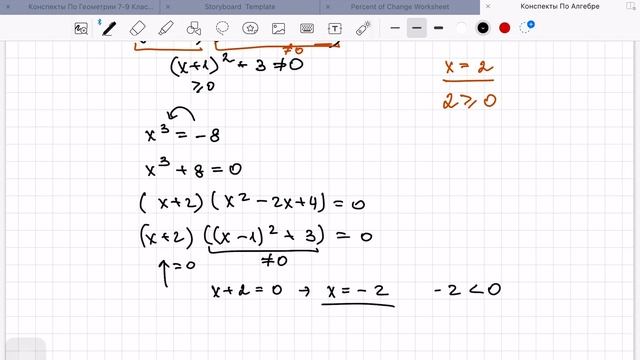 Конспекты По Геометрии 7-9 Клас... Storyboard Template Percent of Change Worksheet Конспекты По Алгебре
≠0
(x+1)² + 3 ≠ 0
≥0
x = 2
2 ≥ 0
x³ = -8
x³ + 8 = 0
(x+2)(x² - 2x+4) = 0
(x+2)((x-1)² + 3) = 0
=0
≠0
x+2 = 0 → x = -2 -2 < 0